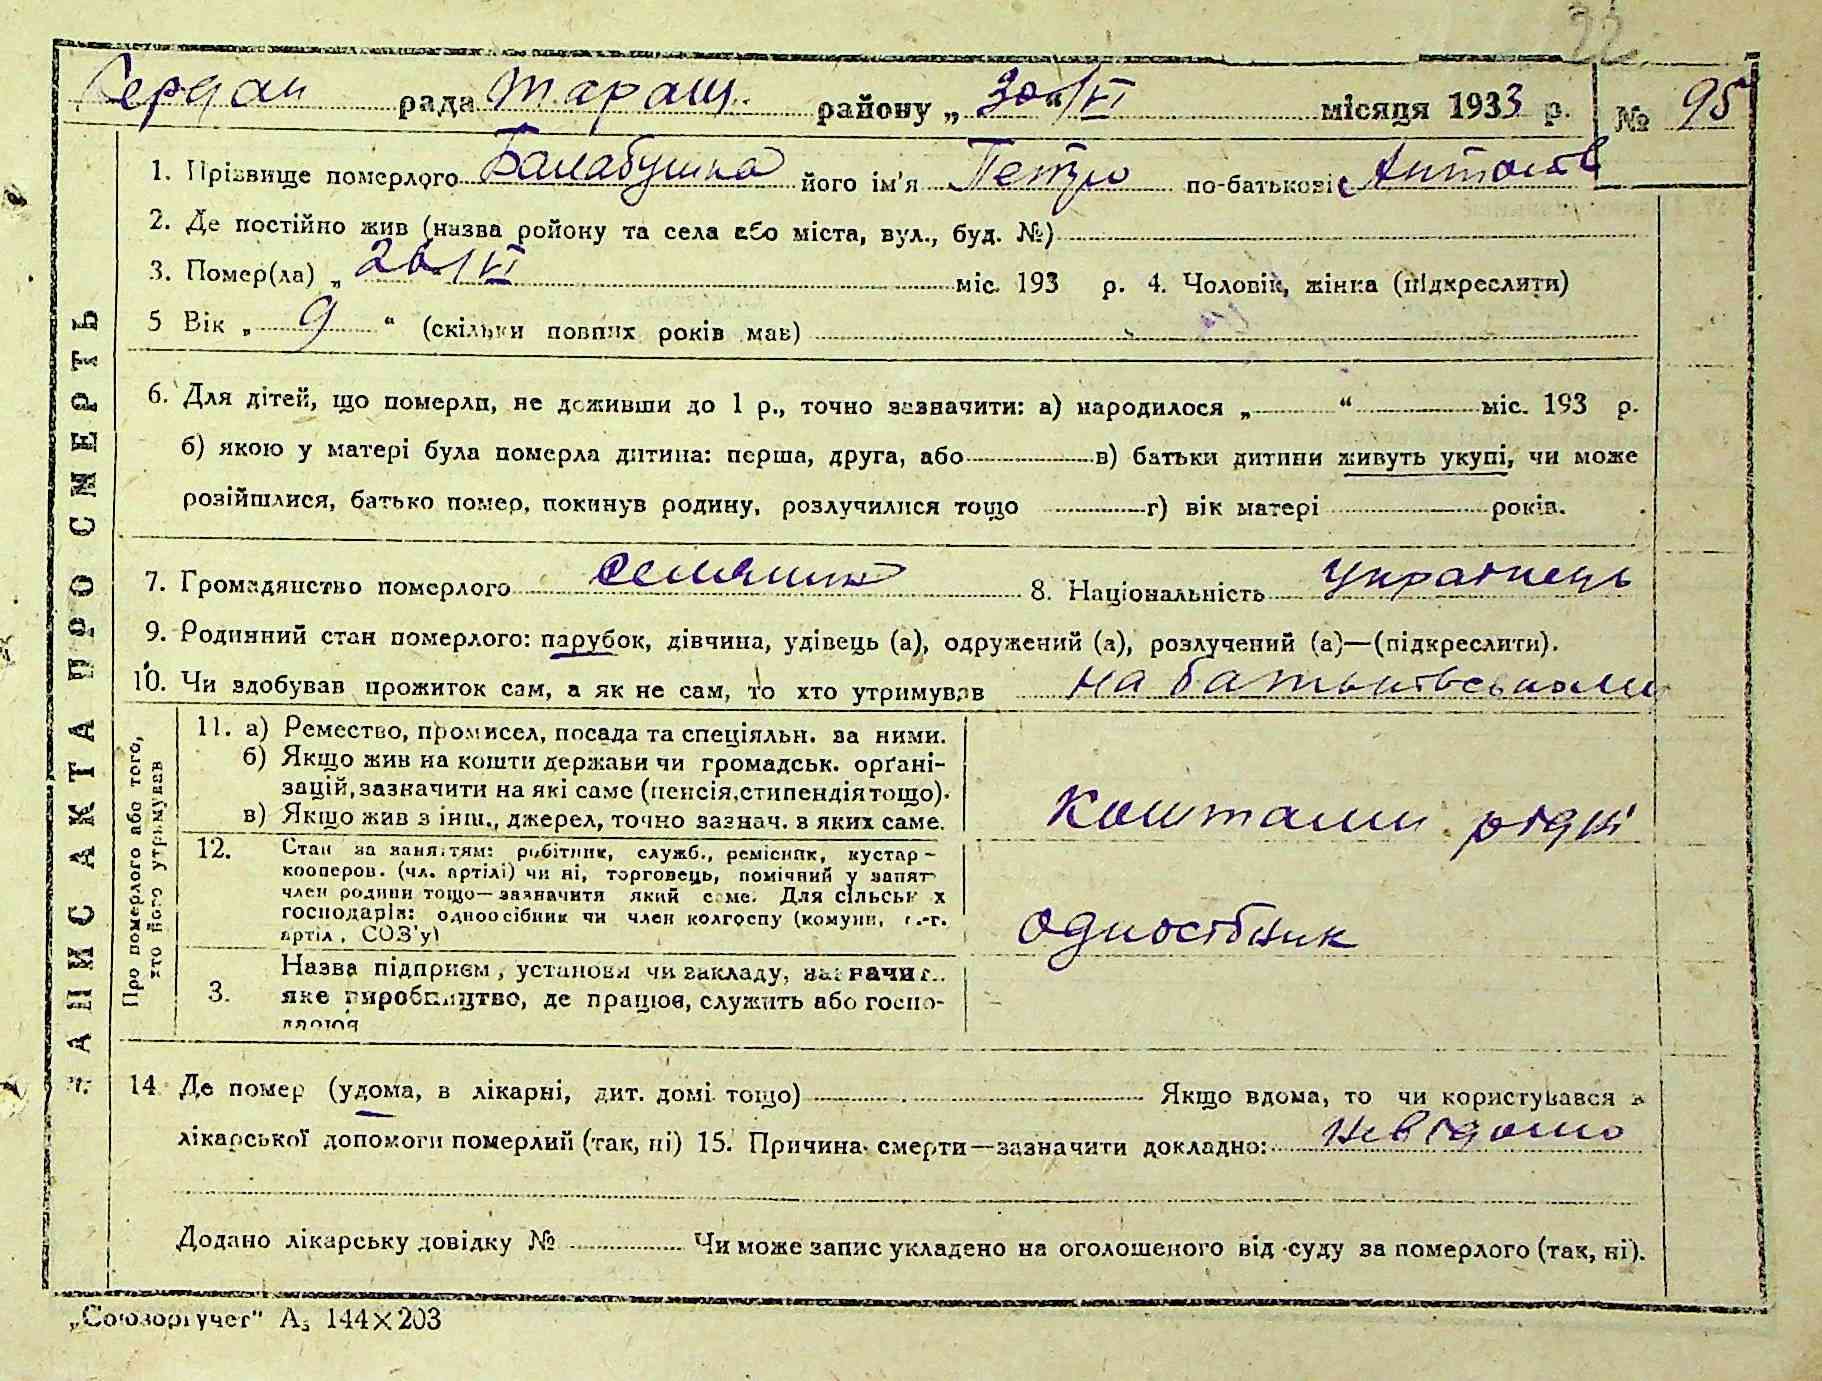 32
Гердан рада Таращ. району „ 30/VI місяця 1933 р. № 95
ЗАПИС АКТА ПРО СМЕРТЬ
1. Прізвище померлого Балабушка його ім'я Петро по-батькові Антонів
2. Де постійно жив (назва району та села або міста, вул., буд. №)
3. Помер(ла) „ 26/VI міс. 193 р. 4. Чоловік, жінка (підкреслити)
5 Вік „ 9 “ (скільки повних років має)
6. Для дітей, що померли, не доживши до 1 р., точно зазначити: а) народилося „ “ міс. 193 р.
б) якою у матері була померла дитина: перша, друга, або в) батьки дитини живуть укупі, чи може
розійшлися, батько помер, покинув родину, розлучилися тощо г) вік матері років.
7. Громадянство померлого селянин 8. Національність українець
9. Родинний стан померлого: парубок, дівчина, удівець (а), одружений (а), розлучений (а)—(підкреслити).
10. Чи здобував прожиток сам, а як не сам, то хто утримував на батьківськими
Про померлого або того, хто його утримував
11. а) Ремество, промисел, посада та спеціяльн. за ними.
б) Якщо жив на кошти держави чи громадськ. орґані-
зацій, зазначити на які саме (пенсія, стипендія тощо).
в) Якщо жив з інш., джерел, точно зазнач. в яких саме.
коштами рідні
12. Стан за заняттям: робітник, служб., ремісник, кустар -
кооперов. (чл. артілі) чи ні, торговець, помічний у занят
член родини тощо—зазначити який саме. Для сільськ х
господарів: одноосібник чи член колгоспу (комуни, с.-г.
артіл , СОЗ'у)
одноосібник
3. Назва підприєм , установи чи закладу, зазначит..
яке виробництво, де працює, служить або госпо-
дарює
14 Де помер (удома, в лікарні, дит. домі тощо) Якщо вдома, то чи користувався
лікарської допомоги померлий (так, ні) 15. Причина смерти—зазначити докладно: невідомо
Додано лікарську довідку № Чи може запис укладено на оголошеного від суду за померлого (так, ні).
„Союзоргучет" А₅ 144×203